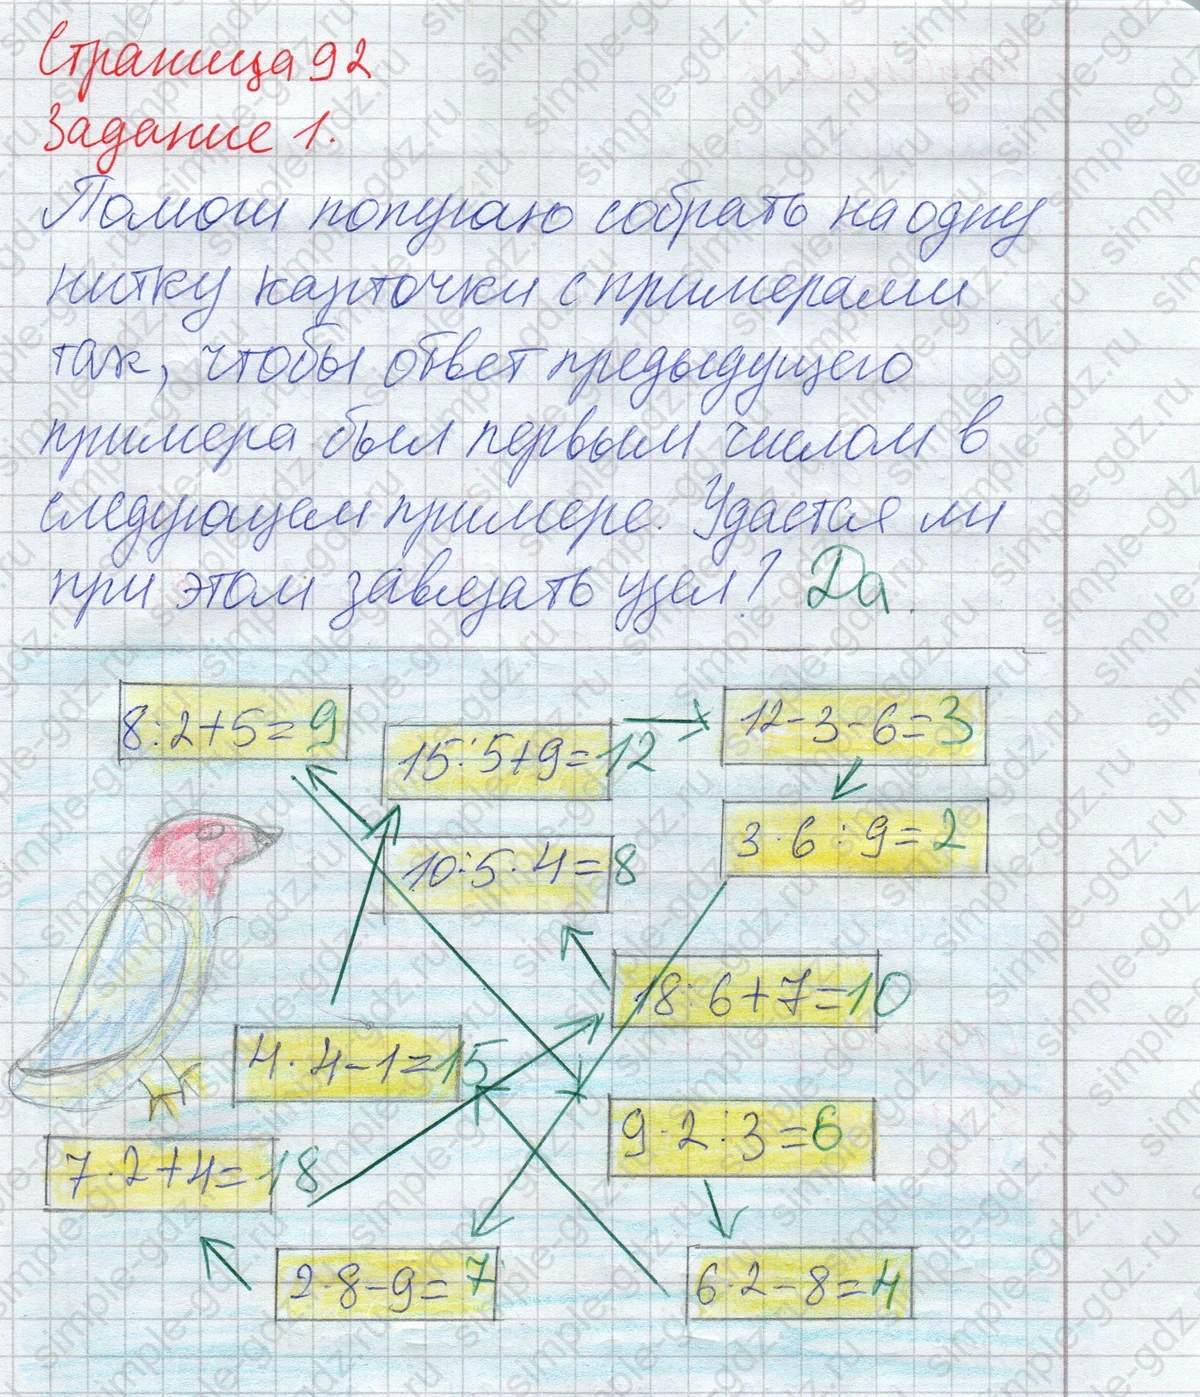 Страница 92
Задание 1.
Помоги попугаю собрать на одну
нитку карточки с примерами
так, чтобы ответ предыдущего
примера был первым числом в
следующем примере. Удастся ли
при этом завязать узел? Да.
8:2+5=9
15:5+9=12
12-3-6=3
10:5·4=8
3·6:9=2
18:6+7=10
4·4-1=15
9·2:3=6
7·2+4=18
2·8-9=7
6·2-8=4
simple-gdz.ru